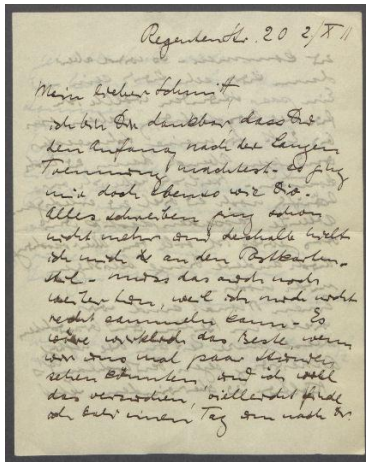 Regentenstr. 20 2/X 11
Mein lieber Schmitt
ich bin Dir dankbar dass Du
den Anfang nach der langen
Trennung machtest. es ging
mir doch ebenso wie Dir.
Alles schreiben ging schon
nicht mehr und deshalb hielt
ich mich an den Postkarten-
stil - muss das auch noch
weiter tun, weil ich mich nicht
recht sammeln kann - Es
wäre wirklich das Beste wenn
wir uns mal paar Stunden
sehen könnten, und ich will
das versuchen, vielleicht finde
ich einen Tag um nach